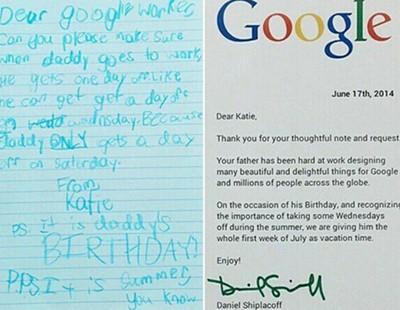 Dear google worker
Can you please make sure
when daddy goes to work
he gets one day off like
he can get get a day off
on wedo wednsday. Because
daddy ONLY gets a day
off on saturday.
From,
Katie
P.S. It is daddy's
BIRTHDAY!
P.P.S It is summer,
you know
Google
June 17th, 2014
Dear Katie,
Thank you for your thoughtful note and request
Your father has been hard at work designing
many beautiful and delightful things for Google
and millions of people across the globe.
On the occasion of his Birthday, and recognizing
the importance of taking some Wednesdays
off during the summer, we are giving him the
whole first week of July as vacation time.
Enjoy!
Daniel Shiplacoff